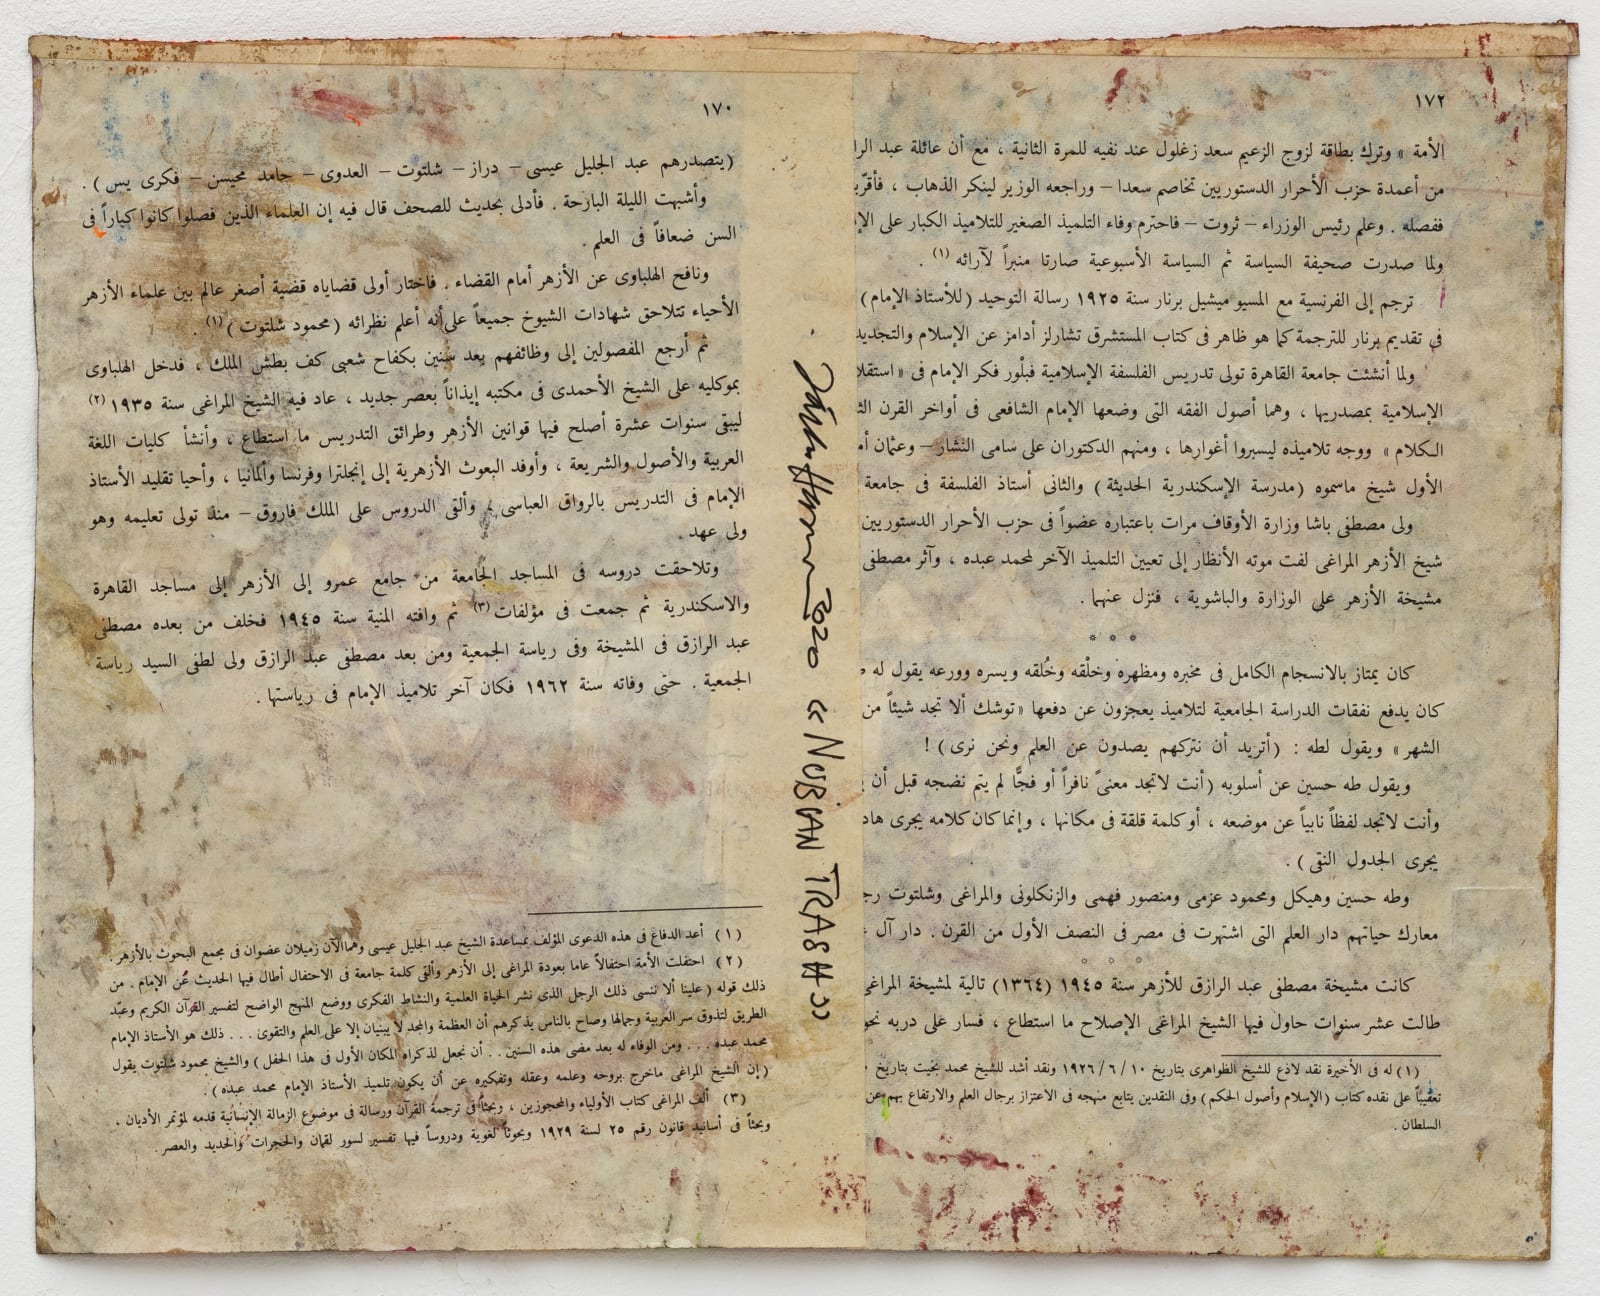 ١٧٢
الأمة » وترك بطاقة لزوج الزعيم سعد زغلول عند نفيه للمرة الثانية ، مع أن عائلة عبد
من أعمدة حزب الأحرار الدستوريين تخاصم سعدا – وراجعه الوزير لينكر الذهاب ،
ففصله . وعلم رئيس الوزراء – ثروت – فاحترم وفاء التلميذ الصغير للتلاميذ الكبار على
ولما صدرت صحيفة السياسة ثم السياسة الأسبوعية صارتا منبراً لآرائه (١) .
ترجم إلى الفرنسية مع المسيو ميشيل برنار سنة ١٩٢٥ رسالة التوحيد (للأستاذ الإمام)
فى تقديم برنار للترجمة كما هو ظاهر فى كتاب المستشرق تشارلز أدامز عن الإسلام والتجديد
ولما أنشئت جامعة القاهرة تولى تدريس الفلسفة الإسلامية فبلْور فكر الإمام فى «
الإسلامية بمصدريها ، وهما أصول الفقه التى وضعها الإمام الشافعى فى أواخر القرن
الكلام » ووجه تلاميذه ليسبروا أغوارها ، ومنهم الدكتوران على سامى النشار – وعثمان
الأول شيخ ماسموه (مدرسة الإسكندرية الحديثة) والثانى أستاذ الفلسفة فى جامعة
ولى مصطفى باشا وزارة الأوقاف مرات باعتباره عضواً فى حزب الأحرار الدستوريين
شيخ الأزهر المراغى لفت موته الأنظار إلى تعيين التلميذ الآخر لمحمد عبده ، وآثر مصطفى
مشيخة الأزهر على الوزارة والباشوية ، فنزل عنهما .
* * *
كان يمتاز بالانسجام الكامل فى مخبره ومظهره وخلْقه وخُلقه ويسره وورعه يقول له
كان يدفع نفقات الدراسة الجامعية لتلاميذ يعجزون عن دفعها «توشك ألا تجد شيئاً من
الشهر » ويقول لطه : (أتريد أن نتركهم يصدون عن العلم ونحن نرى) !
ويقول طه حسين عن أسلوبه (أنت لاتجد معنىً نافراً أو فجًّا لم يتم نضجه قبل أن
وأنت لاتجد لفظاً نابياً عن موضعه ، أو كلمة قلقة فى مكانها ، وإنما كان كلامه يجرى
يجرى الجدول النقى) .
وطه حسين وهيكل ومحمود عزمى ومنصور فهمى والزنكلونى والمراغى وشلتوت
معارك حياتهم دار العلم التى اشتهرت فى مصر فى النصف الأول من القرن . دار آل
* * *
كانت مشيخة مصطفى عبد الرازق للأزهر سنة ١٩٤٥ (١٣٦٤) تالية لمشيخة المراغى
طالت عشر سنوات حاول فيها الشيخ المراغى الإصلاح ما استطاع ، فسار على دربه
(١) له فى الأخيرة نقد لاذع للشيخ الظواهرى بتاريخ ١٠ / ٦ / ١٩٢٦ ونقد أشد للشيخ محمد بخيت بتاريخ
تعقيباً على نقده كتاب (الإسلام وأصول الحكم) وفى النقدين يتابع منهجه فى الاعتزاز برجال العلم والارتفاع بهم عن
السلطان .
Nubian Trash »
2020 «
١٧٠
(يتصدرهم عبد الجليل عيسى – دراز – شلتوت – العدوى – حامد محيسن – فكرى يس) .
وأشبهت الليلة البارحة . فأدلى بحديث للصحف قال فيه إن العلماء الذين فصلوا كانوا كباراً فى
السن ضعافاً فى العلم .
ونافح الهلباوى عن الأزهر أمام القضاء . فاختار أولى قضاياه قضية أصغر عالم بين علماء الأزهر
الأحياء تتلاحق شهادات الشيوخ جميعاً على أنه أعلم نظرائه (محمود شلتوت) (١) .
ثم أرجع المفصولين إلى وظائفهم بعد سنين بكفاح شعبى كف بطش الملك ، فدخل الهلباوى
بموكليه على الشيخ الأحمدى فى مكتبه إيذاناً بعصر جديد ، عاد فيه الشيخ المراغى سنة ١٩٣٥ (٢)
ليبقى سنوات عشرة أصلح فيها قوانين الأزهر وطرائق التدريس ما استطاع ، وأنشأ كليات اللغة
العربية والأصول والشريعة ، وأوفد البعوث الأزهرية إلى إنجلترا وفرنسا وألمانيا ، وأحيا تقليد الأستاذ
الإمام فى التدريس بالرواق العباسى ، وألقى الدروس على الملك فاروق – منذ تولى تعليمه وهو
ولى عهد .
وتلاحقت دروسه فى المساجد الجامعة من جامع عمرو إلى الأزهر إلى مساجد القاهرة
والاسكندرية ثم جمعت فى مؤلفات (٣) ثم وافته المنية سنة ١٩٤٥ فخلف من بعده مصطفى
عبد الرازق فى المشيخة وفى رياسة الجمعية ومن بعد مصطفى عبد الرازق ولى لطفى السيد رياسة
الجمعية . حتى وفاته سنة ١٩٦٢ فكان آخر تلاميذ الإمام فى رياستها .
(١) أعد الدفاع فى هذه الدعوى المؤلف بمساعدة الشيخ عبد الجليل عيسى وهما الآن زميلان عضوان فى مجمع البحوث بالأزهر .
(٢) احتفلت الأمة احتفالاً عاما بعودة المراغى إلى الأزهر وألقى كلمة جامعة فى الاحتفال أطال فيها الحديث عن الإمام . من
ذلك قوله (علينا ألا ننسى ذلك الرجل الذى نشر الحياة العلمية والنشاط الفكرى ووضع المنهج الواضح لتفسير القرآن الكريم وعبّد
الطريق لتذوق سر العربية وجمالها وصاح بالناس يذكرهم أن العظمة والمجد لا يبنيان إلا على العلم والتقوى . . . ذلك هو الأستاذ الإمام
محمد عبده . . . ومن الوفاء له بعد مضى هذه السنين . . أن نجعل لذكراه المكان الأول فى هذا الحفل) والشيخ محمود شلتوت يقول
(إن الشيخ المراغى ماخرج بروحه وعلمه وعقله وتفكيره عن أن يكون تلميذ الأستاذ الإمام محمد عبده) .
(٣) ألف المراغى كتاب الأولياء والمحجوزين ، وبحثاً فى ترجمة القرآن ورسالة فى موضوع الزمالة الإنسانية قدمه لمؤتمر الأديان ،
وبحثاً فى أسانيد قانون رقم ٢٥ لسنة ١٩٢٩ وبحوثاً لغوية ودروساً فيها تفسير لسور لقمان والحجرات والحديد والعصر .